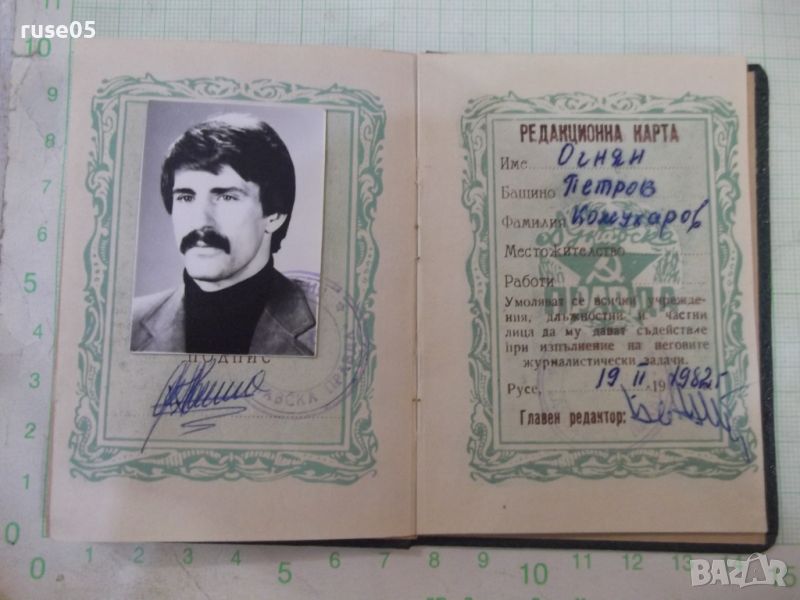 ruse05
ПОДПИС
РЕДАКЦИОННА КАРТА
Име Огнян
Бащино Петров
Фамилия Кожухаров
Местожителство
Работи
Умоляват се всички учрежде-
ния, длъжностни и частни
лица да му дават съдействие
при изпълнение на неговите
журналистически задачи.
Русе, 19 II 19 1982 г
Главен редактор:
BAZAR
0 1 2 3 4 5 6 7 8 9 10 11 12 13 14 15